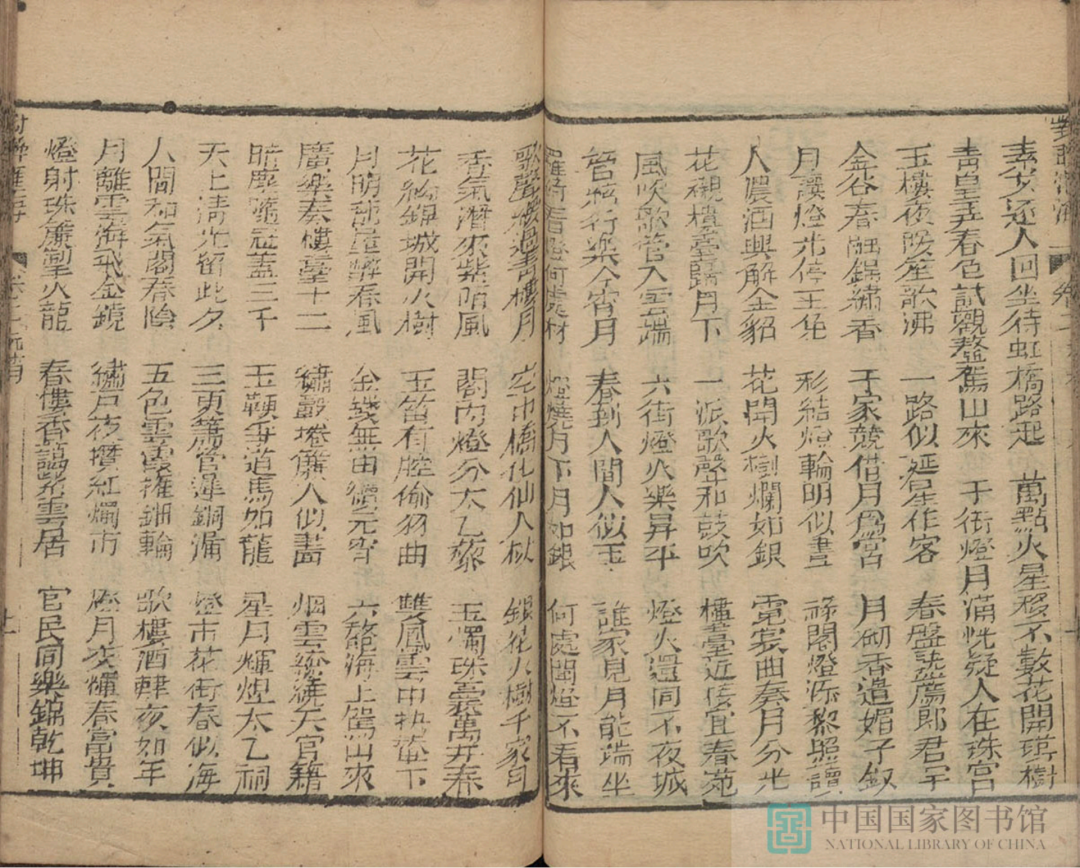 素女还人回坐待虹橋路起 萬點火星移不數花開琪樹
青皇弄春色試觀鰲駕山來 于衢燈月滿恍疑人在珠宮
玉樓夜暖笙歌沸 一路似 君星作客 春盤 薦郎君
金谷春 錦繡香 千家競借月爲宮 月砌香遺媚子釵
月 燈光停玉兔 彩結燈輪明似晝 閣燈添黎照讀
人濃酒興解金貂 花開火樹爛如銀 霓裳曲奏月分光
花襯樓臺歸月下 一派歌聲和鼓吹 樓臺近接宜春苑
風吹歌管入雲端 六街燈火樂昇平 燈火還同不夜城
管絃行樂今宵月 春到人間人似玉 誰家見月能端坐
羅綺 春燈何處村 燈燒月下月如銀 何處聞燈不看來
歌聲 過青樓月 空中橋化仙人杖 銀花火樹千家
香氣潛來紫陌風 閣内燈分太乙藜 玉燭珠囊萬井春
花 錦城開火樹 玉笛有腔偷羽曲 雙鳳雲中扶輦下
月明 春風 金錢無由 元宵 六鰲海上駕山來
廣樂奏樓臺十二 繡 捲簾人似畫 烟雲繚繞天官籍
暗塵隨冠蓋三千 玉鞭爭道馬如龍 星月輝煌太乙祠
天上清光留此夕 三更簫管 銅漏 燈市花街春似海
人間和氣閣春陰 五色雲霞擁鈿輪 歌樓酒肆夜如年
月離雲海飛金鏡 繡戶夜攢紅燭市 燈月交輝春富貴
燈射珠簾掣火龍 春 香 碧雲居 官民同樂錦乾坤
卷二
中国国家图书馆
NATIONAL LIBRARY OF CHINA